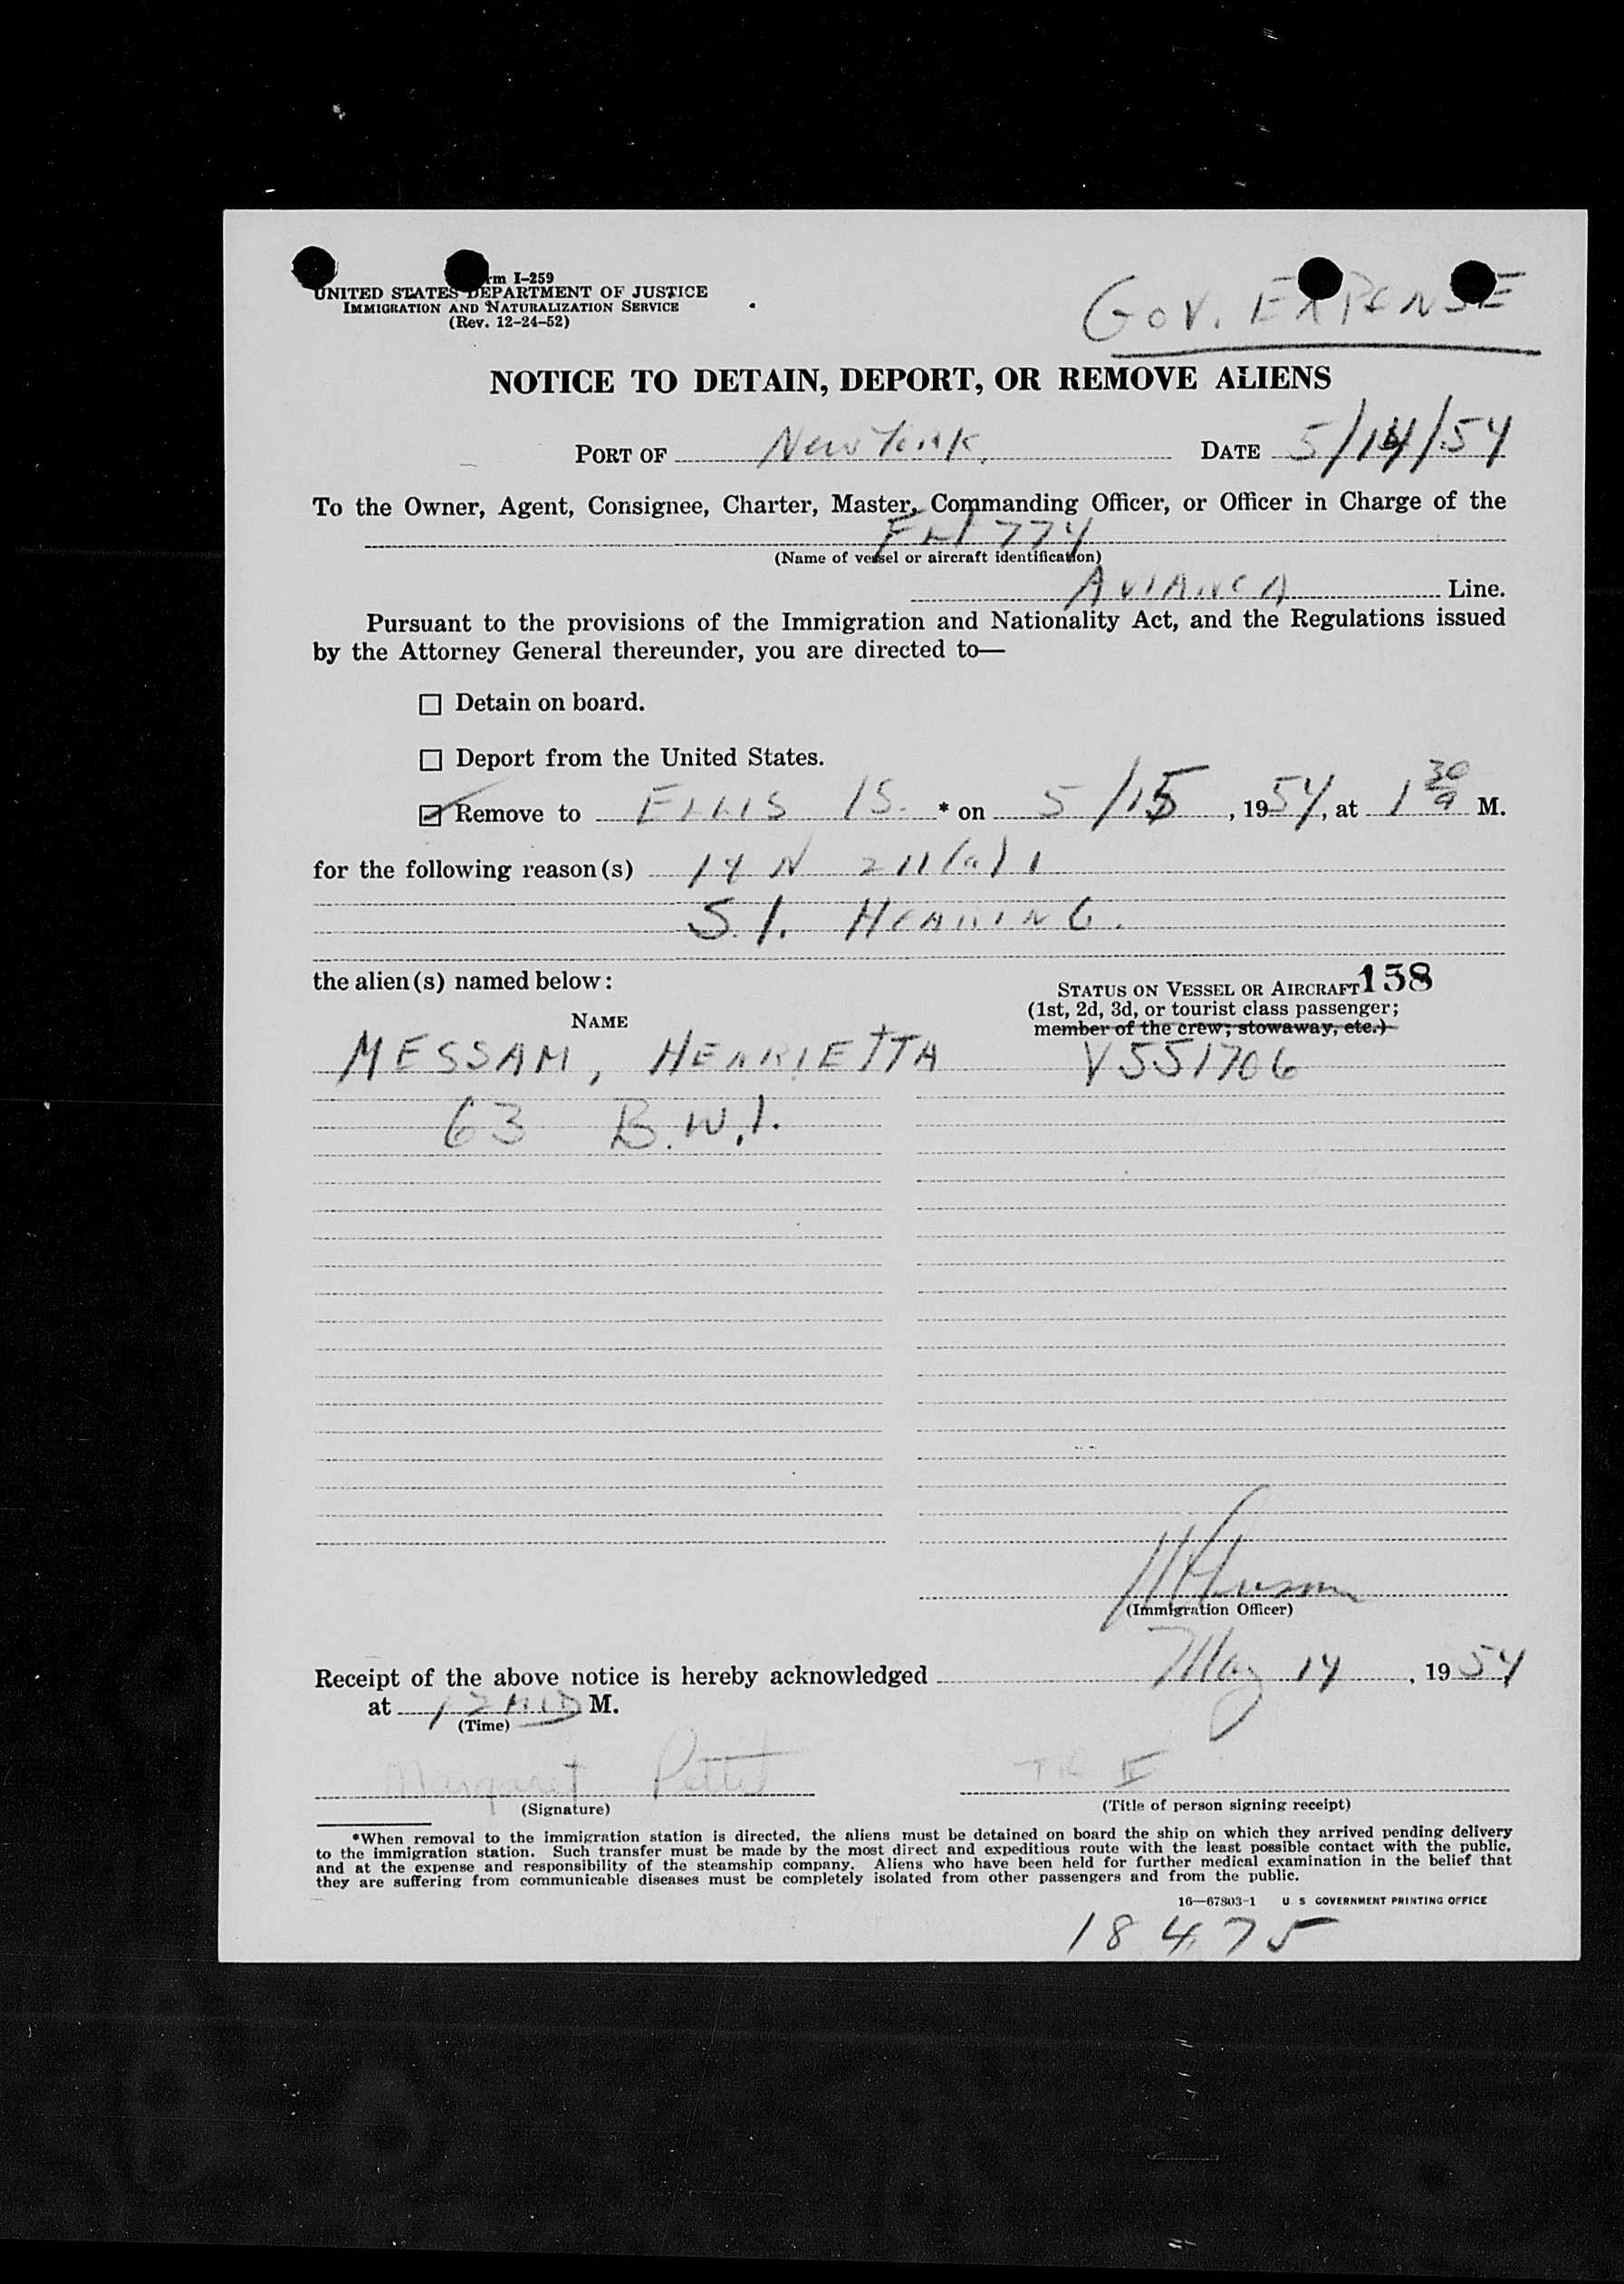 m I-259
UNITED STATES DEPARTMENT OF JUSTICE
IMMIGRATION AND NATURALIZATION SERVICE
(Rev. 12-24-52)
GOV. EXPENSE
NOTICE TO DETAIN, DEPORT, OR REMOVE ALIENS
PORT OF New York. DATE 5/14/54
To the Owner, Agent, Consignee, Charter, Master, Commanding Officer, or Officer in Charge of the
774
(Name of vessel or aircraft identification)
AVIANCA Line.
Pursuant to the provisions of the Immigration and Nationality Act, and the Regulations issued
by the Attorney General thereunder, you are directed to—
Detain on board.
Deport from the United States.
Remove to ELLIS IS. * on 5/15, 1954, at 1 30 M.
for the following reason(s) 211(a) 1
S.I. HEARING.
the alien(s) named below:
STATUS ON VESSEL OR AIRCRAFT 158
(1st, 2d, 3d, or tourist class passenger;
member of the crew; stowaway, etc.)
NAME
MESSAM, HENRIETTA V551706
63 B.W.I.
(Immigration Officer)
Receipt of the above notice is hereby acknowledged May 14, 1954
at 12 MID M.
(Time)
Margaret
(Signature)
(Title of person signing receipt)
*When removal to the immigration station is directed, the aliens must be detained on board the ship on which they arrived pending delivery
to the immigration station. Such transfer must be made by the most direct and expeditious route with the least possible contact with the public,
and at the expense and responsibility of the steamship company. Aliens who have been held for further medical examination in the belief that
they are suffering from communicable diseases must be completely isolated from other passengers and from the public.
16—67803-1 U. S. GOVERNMENT PRINTING OFFICE
18475